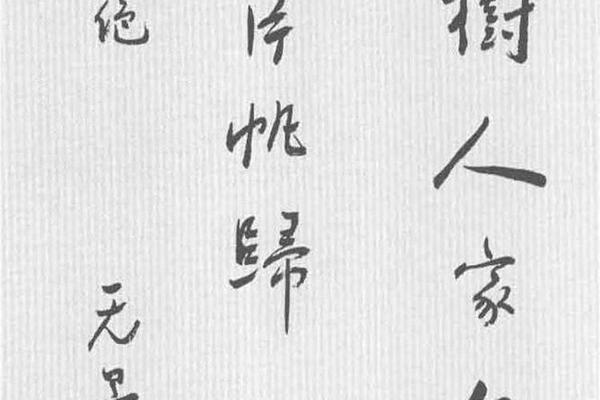 樹人家
片帆歸
绝 无